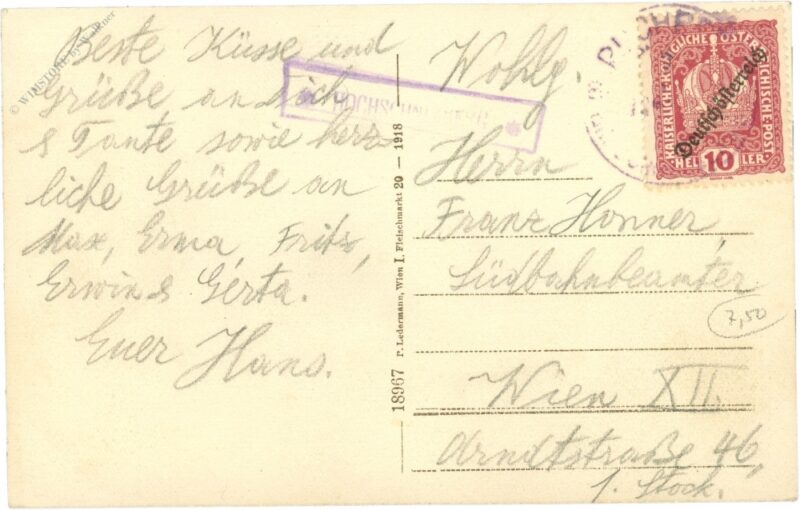 Beste Küsse und
Grüße an Dich
& Tante sowie herz-
liche Grüße an
Max, Erma, Fritz,
Erwin & Gerta.
Euer Hans.
© WINSTORE by Waldner
HOCHSCHNEEBERG
18967 P. Ledermann, Wien I. Fleischmarkt 20 — 1918
PUCHBERG
KAISERLICHE KÖNIGLICHE ÖSTERREICHISCHE POST
Deutschösterreich
HELLER 10
Wohlg.
Herrn
Franz Honner,
Südbahnbeamter
7,50
Wien XII.
Arndtstraße 46,
1. Stock.